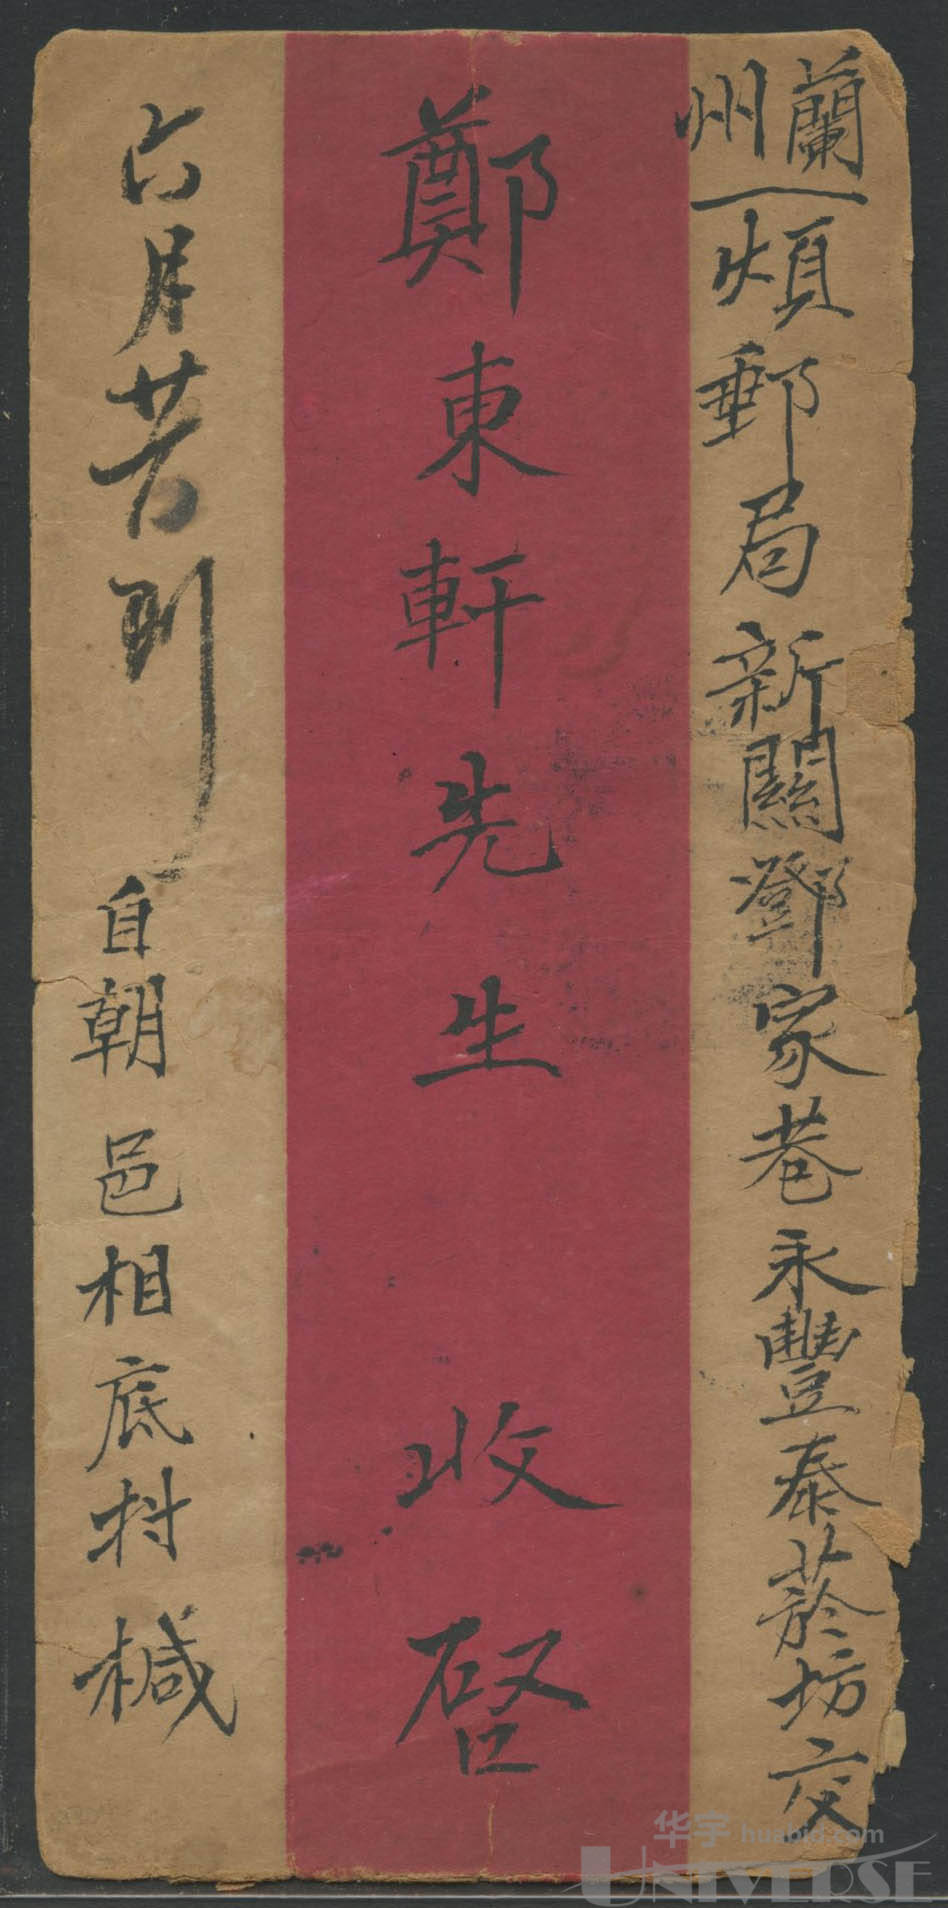 蘭州煩郵局新關鄧家巷永豐泰菸坊交
鄭東軒先生 收啓
六月廿 自朝邑相底村椷
华宇 huabid.com
UNIVERSE